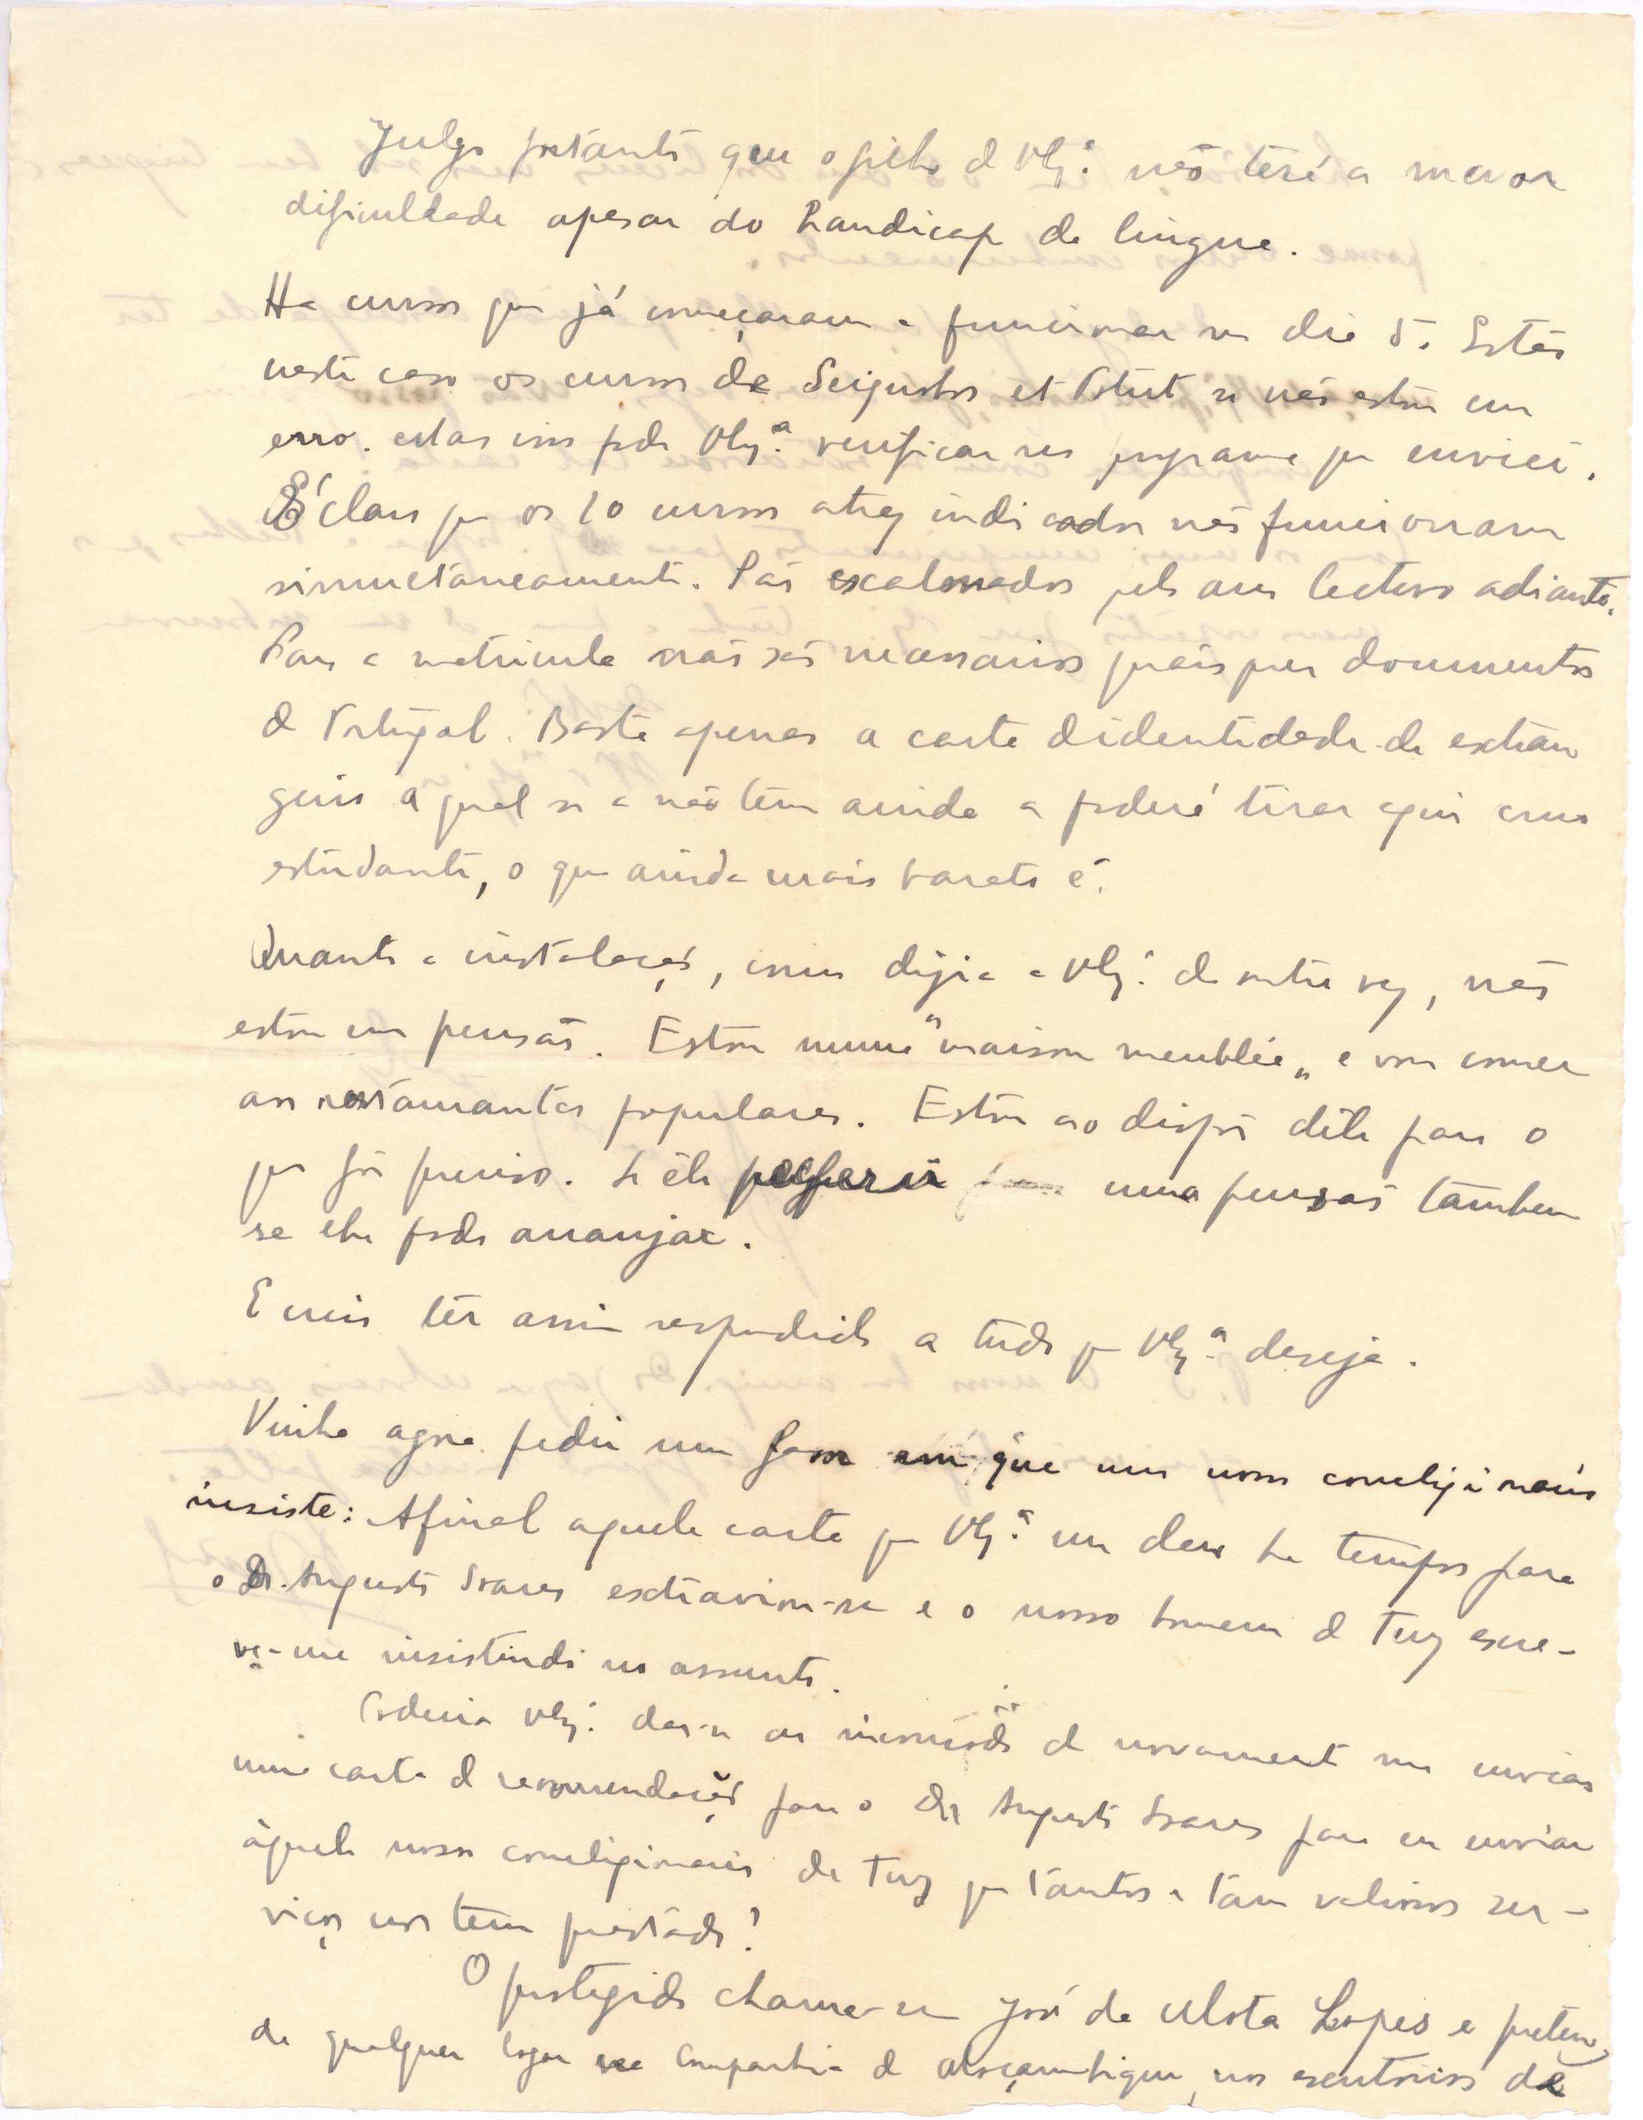 Julgo portanto que o filho de V. Ex.ª não terá a menor
dificuldade apesar do handicap da lingua.
Ha cursos que já começaram a funcionar no dia 5. Estão
neste caso os cursos de et Statut se não estou em
erro. Mas isso pode V. Ex.ª verificar no programa que enviei.
É claro que os 10 cursos ali indicados não funcionam
simultaneamente. São escalonados pelo ano lectivo adiante.
Para a matricula não são necessarios quaisquer documentos
de Portugal. Basta apenas a carta d'identidade de extran
geiro a qual se a não tem ainda a poderá tirar aqui como
estudante, o que ainda mais barato é.
Quanto a instalação, como dizia a V. Ex.ª da outra vez, não
estou em pensão. Estou numa "maison meublée" e vou comer
aos restaurantes populares. Estou ao dispôr dêle para o
que fôr preciso. Se êle preferir uma pensão tambem
se lhe pode arranjar.
E creio têr assim respondido a tudo que V. Ex.ª deseja.
Vinha agora pedir um favor em que um nosso correligionário
insiste: Afinal aquela carta que V. Ex.ª me deu ha tempos para
o Dr. Augusto Soares extraviou-se e o nosso homem de Tuy escre-
ve-me insistindo no assunto.
Poderia V. Ex.ª dar-se ao incómodo de novamente me enviar
uma carta de recomendação para o Dr Augusto Soares para eu enviar
àquele nosso correligionario de Tuy que tantos e tam valiosos ser-
viços nos tem prestado?
O protegido chama-se José da Mota Lopes e preten
de qualquer logar na Companhia de Moçambique, nos escritorios de